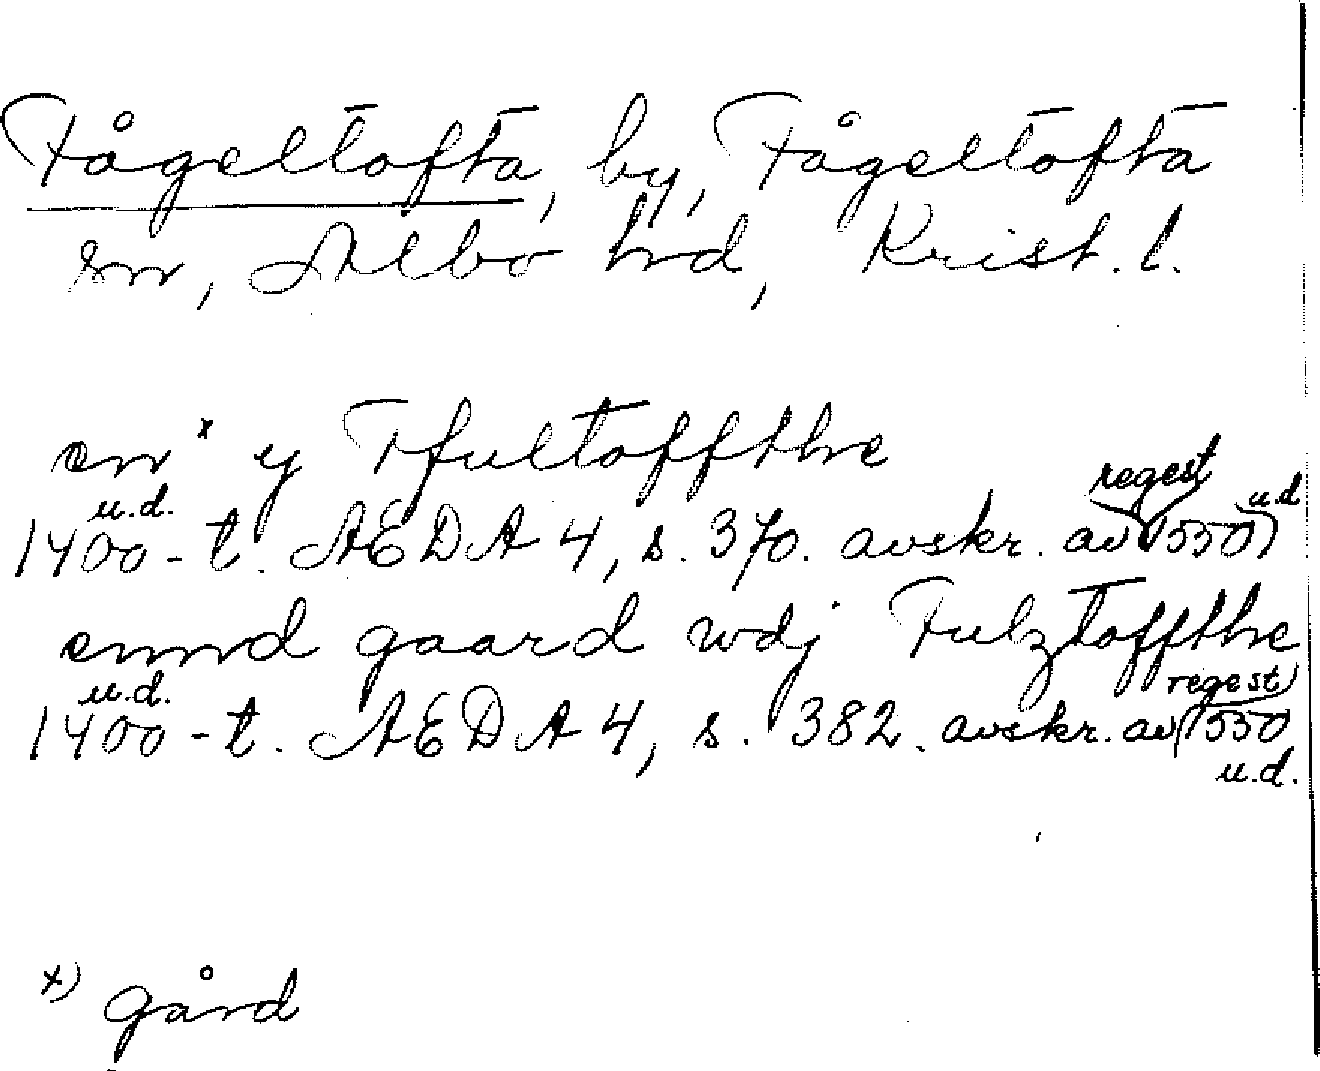 Fågeltofta, by, Fågeltofta
sn, Albo hd, Krist. l.
en x y Ffultoffthe
1400-t. u.d. ÆDA 4, s. 370. avskr. av regest 1550 u.d
ennd gaard wdj Fulztoffthe
1400-t. u.d. ÆDA 4, s. 382. avskr. av regest 1550 u.d.
x) gård